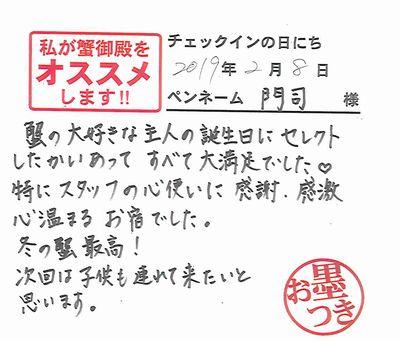 私が蟹御殿を
オススメ
します!!
チェックインの日にち
2019年2月8日
ペンネーム 門司 様
蟹の大好きな主人の誕生日に セレクト
したかいあって すべて大満足でした♡
特にスタッフの心使いに 感謝、感激
心温まる お宿でした。
冬の蟹 最高!
次回は子供も連れて来たいと
思います。
お墨つき